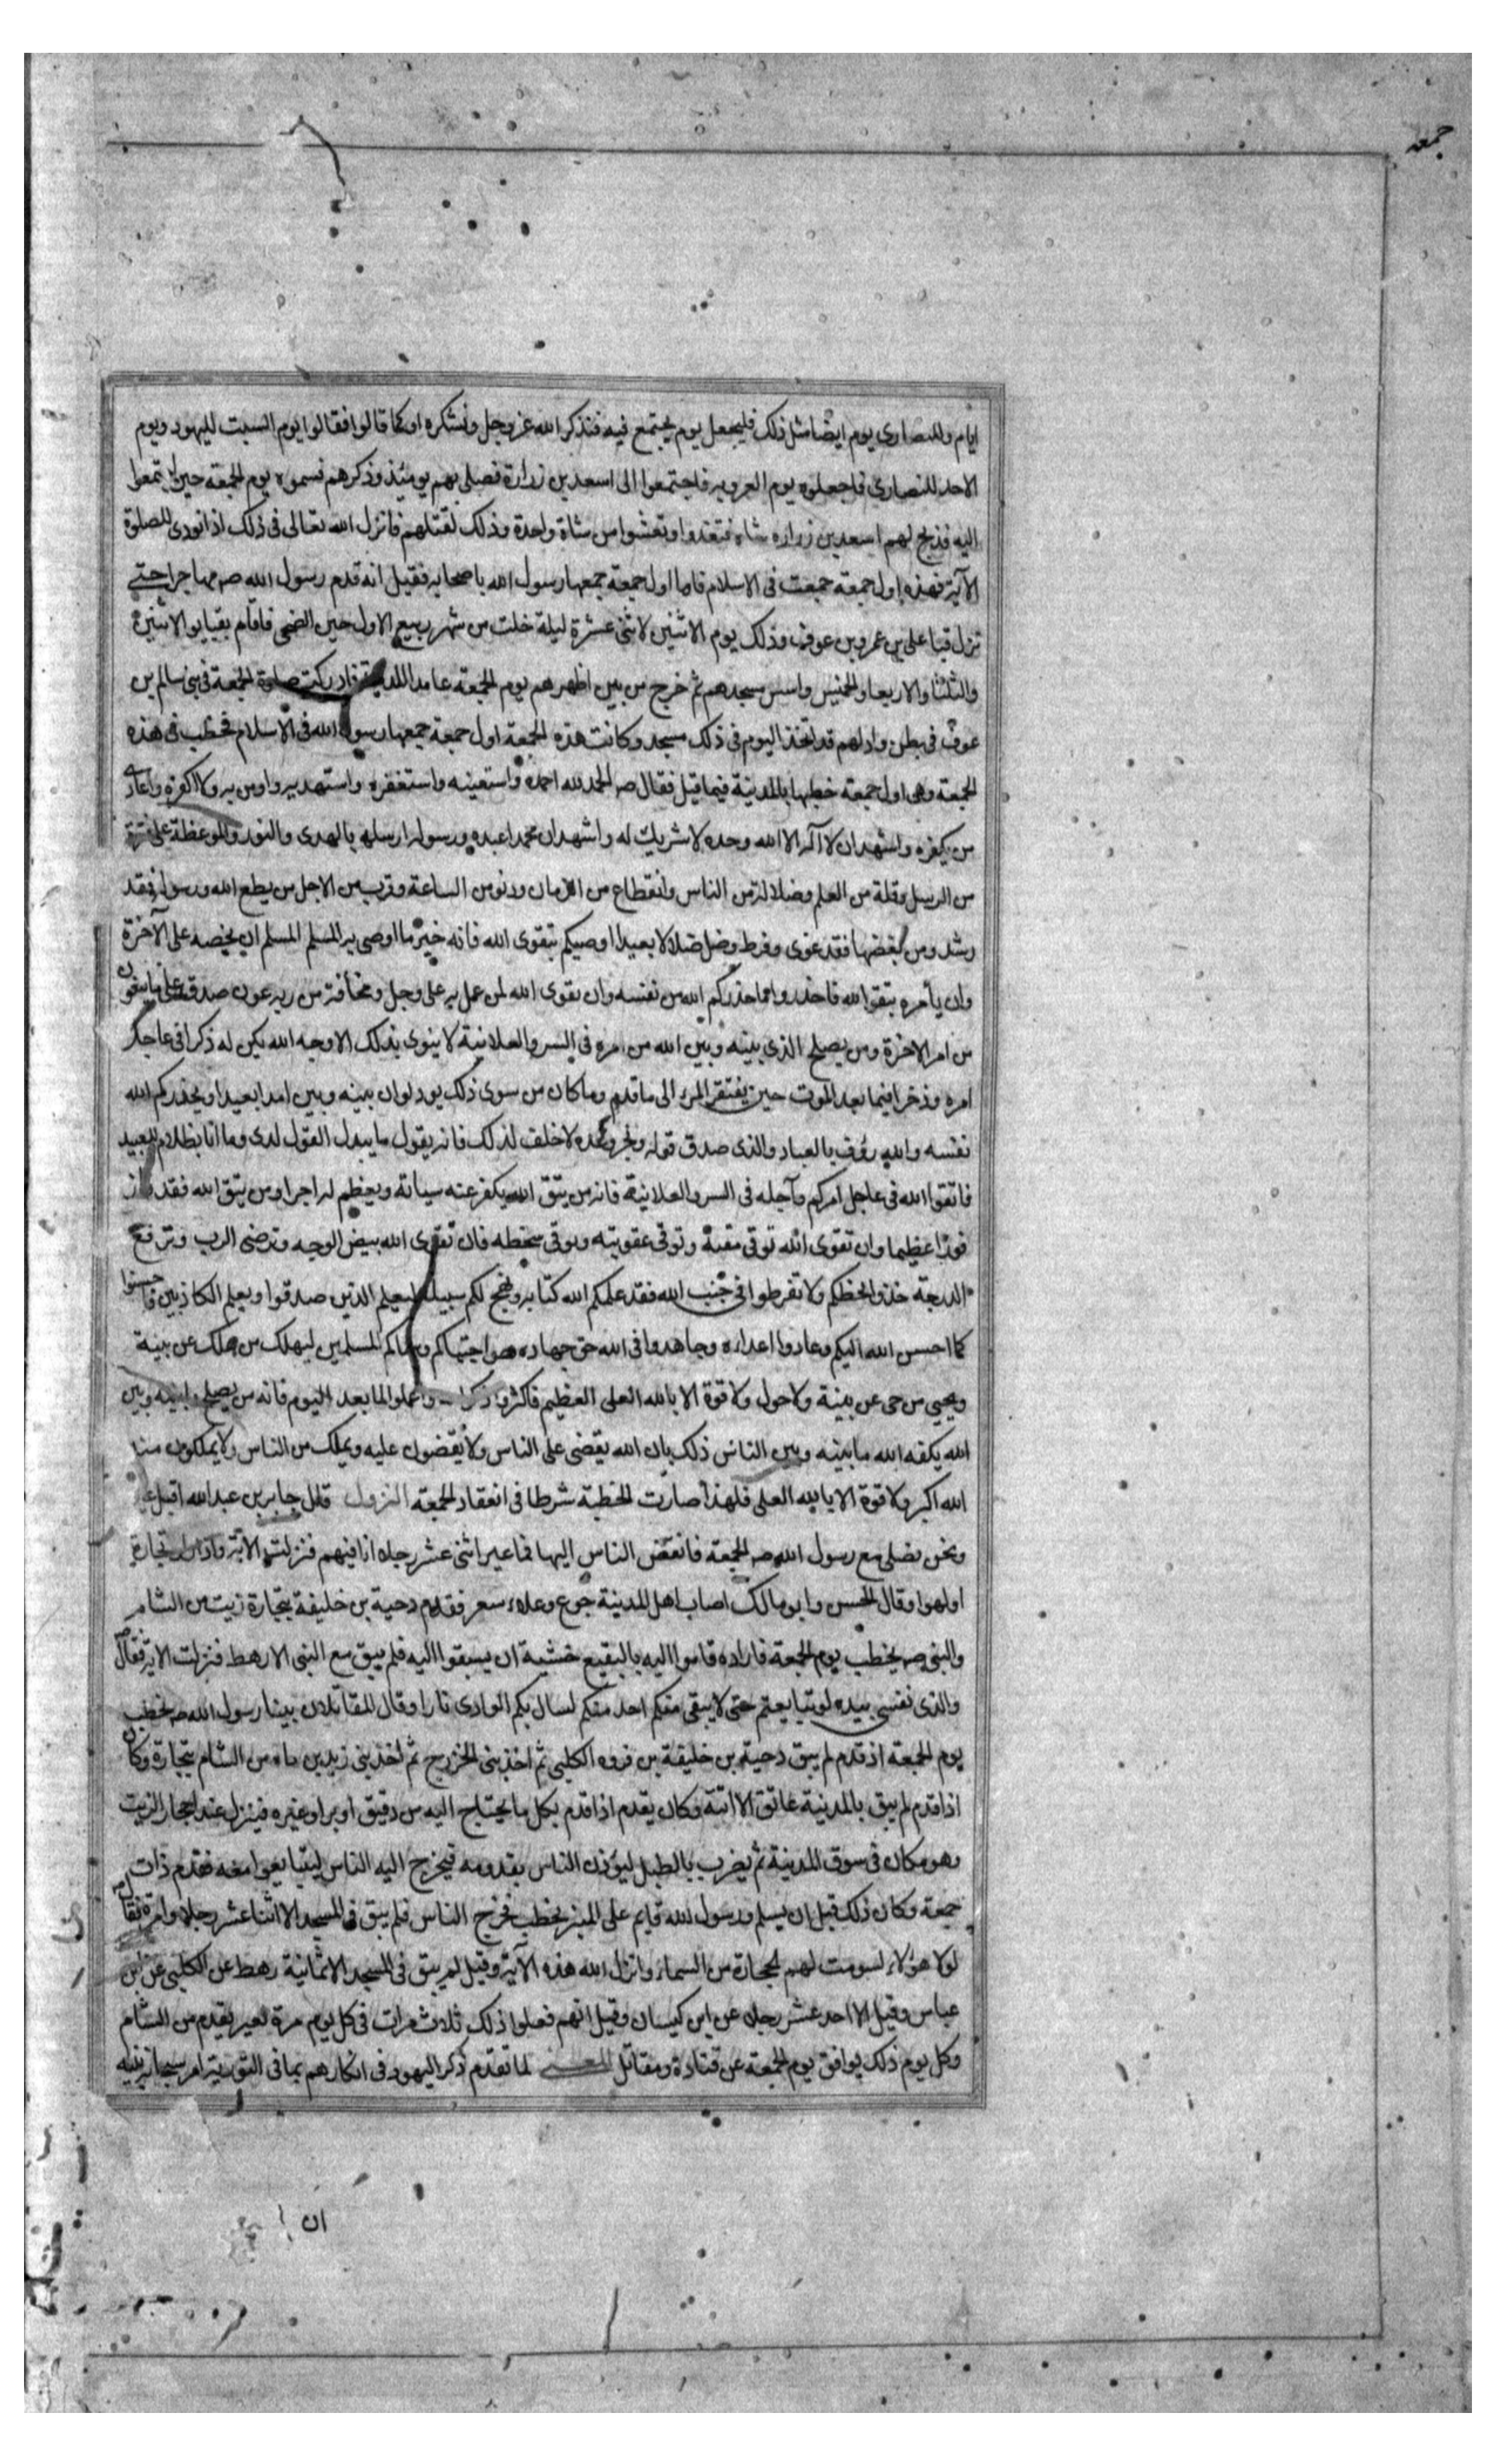 جمعه
ايام وللنصارى يوم ايضا مثل ذلك فليجعل يوم يجتمع فيه فنذكر الله عز وجل ونشكره او كما قالوا فقالوا يوم السبت لليهود ويوم
الاحد للنصارى فاجعلوه يوم العروبه فاجتمعوا الى اسعد بن زرارة فصلى بهم يومئذ وذكرهم فسموه يوم الجمعة حين اجتمعوا
اليه فذبح لهم اسعد بن زراره شاه فتغدوا وتعشوا من شاة واحدة وذلك لقتلهم فانزل الله تعالى فى ذلك اذا نودى للصلوة
الآية فهذه اول جمعة جمعت فى الاسلام فاما اول جمعة جمعها رسول الله باصحابه فقيل انه قدم رسول الله صه مهاجرا حتى
نزل قبا على بن عمرو بن عوف وذلك يوم الاثنين لاثنى عشرة ليلة خلت من شهر ربيع الاول حين الضحى فاقام بقبا يوم الاثنين
والثلثا والاربعا والخميس واسس مسجدهم ثم خرج من بين اظهرهم يوم الجمعة عامدا للمدينة فادركت صلوة الجمعة فى بنى سالم بن
عوف فى بطن واد لهم قد اتخذ اليوم فى ذلك مسجد وكانت هذه الجمعة اول جمعة جمعها رسول الله فى الاسلام فخطب فى هذه
الجمعة وهى اول جمعة خطبها بالمدينة فيما قيل فقال صه الحمد لله احمده واستعينه واستغفره واستهديه واومن به ولا اكفره واعادى
من يكفره واشهد ان لا اله الا الله وحده لا شريك له واشهد ان محمدا عبده ورسوله ارسله بالهدى والنور والموعظة على فترة
من الرسل وقلة من العلم وضلالة من الناس وانقطاع من الزمان ودنو من الساعة وقرب من الاجل من يطع الله ورسوله فقد
رشد ومن يعصهما فقد غوى وفرط وضل ضلالا بعيدا اوصيكم بتقوى الله فانه خير ما اوصى به المسلم المسلم ان يحضه على الآخرة
وان يأمره بتقوا الله فاحذروا ما حذركم الله من نفسه وان تقوى الله لمن عمل به على وجل ومخافة من ربه عون صدق على ما تبغون
من امر الاخرة ومن يصلح الذى بينه وبين الله من امره فى السر والعلانية لا ينوى بذلك الا وجه الله يكن له ذكرا فى عاجل
امره وذخرا فيما بعد الموت حين يفتقر المرء الى ما قدم وما كان من سوى ذلك يود لو ان بينه وبين امدا بعيدا ويحذركم الله
نفسه والله رؤف بالعباد والذى صدق قوله ونجز وعده لا خلف لذلك فانه يقول ما يبدل القول لدى وما انا بظلام للعبيد
فاتقوا الله فى عاجل امركم وآجله فى السر والعلانية فانه من يتق الله يكفر عنه سيأته ويعظم له اجرا ومن يتق الله فقد فاز
فوزا عظيما وان تقوى الله توقى مقته وتوقى عقوبته وتوقى سخطه فان تقوى الله يبيض الوجه وترضى الرب وترفع
الدرجة خذوا بحظكم ولا تفرطوا فى جنب الله فقد علمكم الله كتابه ونهج لكم سبيله ليعلم الذين صدقوا ويعلم الكاذبين فاحسنوا
كما احسن الله اليكم وعادوا اعداءه وجاهدوا فى الله حق جهاده هو اجتباكم وسماكم المسلمين ليهلك من هلك عن بينة
ويحيى من حى عن بينة ولا حول ولا قوة الا بالله العلى العظيم فاكثروا ذكر الله واعملوا لما بعد اليوم فانه من يصلح ما بينه وبين
الله يكفه الله ما بينه وبين الناس ذلك بان الله يقضى على الناس ولا يقضون عليه ويملك من الناس ولا يملكون منه
الله اكبر ولا قوة الا بالله العلى فلهذا صارت الخطبة شرطا فى انعقاد الجمعة النزول قال جابر بن عبد الله اقبل عير
ونحن نصلى مع رسول الله صه الجمعة فانفض الناس اليها فما غير اثنى عشر رجلا انا فيهم فنزلت الاية واذا راوا تجارة
او لهوا وقال الحسن وابو مالك اصاب اهل المدينة جوع وغلاء سعر فقدم دحية بن خليفة بتجارة زيت من الشام
والنبى صه يخطب يوم الجمعة فلما راوه قاموا اليه بالبقيع خشية ان يسبقوا اليه فلم يبق مع النبى الا رهط فنزلت الاية فقال صه
والذى نفسى بيده لو تتابعتم حتى لا يبقى منكم احد منكم لسال بكم الوادى نارا وقال المقاتلان بينا رسول الله صه يخطب
يوم الجمعة اذ قدم لم يبق دحية بن خليفة بن فروه الكلبى ثم احد بنى الخزرج ثم احد بنى زيد بن ماه من الشام بتجارة وكان
اذا قدم لم يبق بالمدينة عاتق الا اتته وكان يقدم اذا قدم بكل ما يحتاج اليه من دقيق او بر او غيره فينزل عند احجار الزيت
وهو مكان فى سوق المدينة ثم يضرب بالطبل ليؤذن الناس بقدومه فيخرج اليه الناس ليتبايعوا معه فقدم ذات
جمعة وكان ذلك قبل ان يسلم ورسول الله قايم على المنبر يخطب فخرج الناس فلم يبق فى المسجد الا اثنا عشر رجلا وامرة فقال صه
لولا هؤلاء لسومت لهم الحجارة من السماء وانزل الله هذه الآية وقيل لم يبق فى المسجد الا ثمانية رهط عن الكلبى عن ابن
عباس وقيل الا احد عشر رجلا عن ابن كيسان وقيل انهم فعلوا ذلك ثلاث مرات فى كل يوم مرة لعير يقدم من الشام
وكل يوم ذلك يوافق يوم الجمعة عن قتادة ومقاتل المعنى لما تقدم ذكر اليهود فى انكارهم بما فى التورية امر سبحانه نبيه
ان